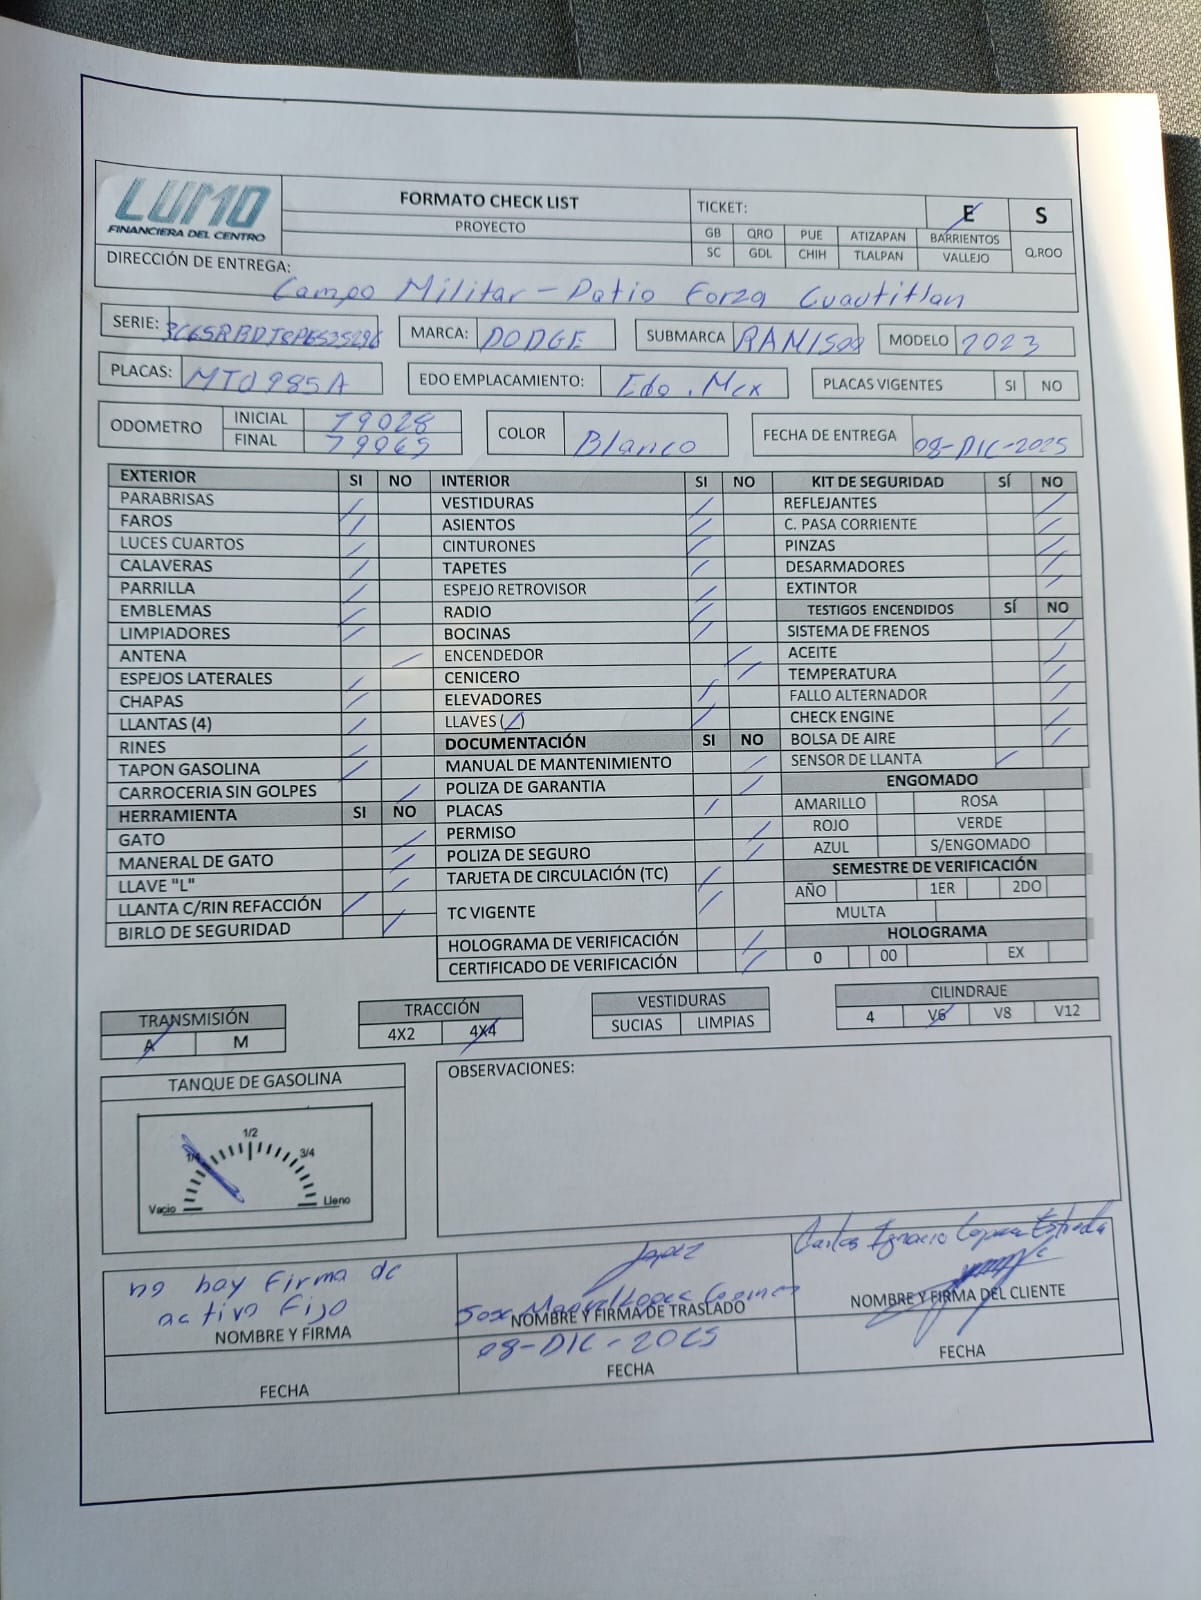 LUMO
FINANCIERA DEL CENTRO
FORMATO CHECK LIST
PROYECTO
TICKET: E S
GB QRO PUE ATIZAPAN BARRIENTOS
SC GDL CHIH TLALPAN VALLEJO Q,ROO
DIRECCIÓN DE ENTREGA:
Campo Militar - Patio Forza Cuautitlan
SERIE: MARCA: DODGE SUBMARCA RAM1500 MODELO 2023
PLACAS: MT0985A EDO EMPLACAMIENTO: Edo. Mex PLACAS VIGENTES SI NO
ODOMETRO INICIAL 79028 COLOR Blanco FECHA DE ENTREGA 08-DIC-2025
FINAL 79065
EXTERIOR SI NO INTERIOR SI NO KIT DE SEGURIDAD SÍ NO
PARABRISAS VESTIDURAS REFLEJANTES
FAROS ASIENTOS C. PASA CORRIENTE
LUCES CUARTOS CINTURONES PINZAS
CALAVERAS TAPETES DESARMADORES
PARRILLA ESPEJO RETROVISOR EXTINTOR
EMBLEMAS RADIO TESTIGOS ENCENDIDOS SÍ NO
LIMPIADORES BOCINAS SISTEMA DE FRENOS
ANTENA ENCENDEDOR ACEITE
ESPEJOS LATERALES CENICERO TEMPERATURA
CHAPAS ELEVADORES FALLO ALTERNADOR
LLANTAS (4) LLAVES (1) CHECK ENGINE
RINES DOCUMENTACIÓN SI NO BOLSA DE AIRE
TAPON GASOLINA MANUAL DE MANTENIMIENTO SENSOR DE LLANTA
CARROCERIA SIN GOLPES POLIZA DE GARANTIA ENGOMADO
HERRAMIENTA SI NO PLACAS AMARILLO ROSA
GATO PERMISO ROJO VERDE
MANERAL DE GATO POLIZA DE SEGURO AZUL S/ENGOMADO
LLAVE "L" TARJETA DE CIRCULACIÓN (TC) SEMESTRE DE VERIFICACIÓN
LLANTA C/RIN REFACCIÓN TC VIGENTE AÑO 1ER 2DO
BIRLO DE SEGURIDAD MULTA
HOLOGRAMA DE VERIFICACIÓN HOLOGRAMA
CERTIFICADO DE VERIFICACIÓN 0 00 EX
TRANSMISIÓN TRACCIÓN VESTIDURAS CILINDRAJE
A M 4X2 4X4 SUCIAS LIMPIAS 4 V6 V8 V12
TANQUE DE GASOLINA OBSERVACIONES:
1/2
1/4 3/4
Vacio Lleno
no hay firma de activo fijo
NOMBRE Y FIRMA
FECHA
Lopez
Jose Manuel Lopez
NOMBRE Y FIRMA DE TRASLADO
08-DIC-2025
FECHA
Carlos Ignacio Lopez Estrada
NOMBRE Y FIRMA DEL CLIENTE
FECHA